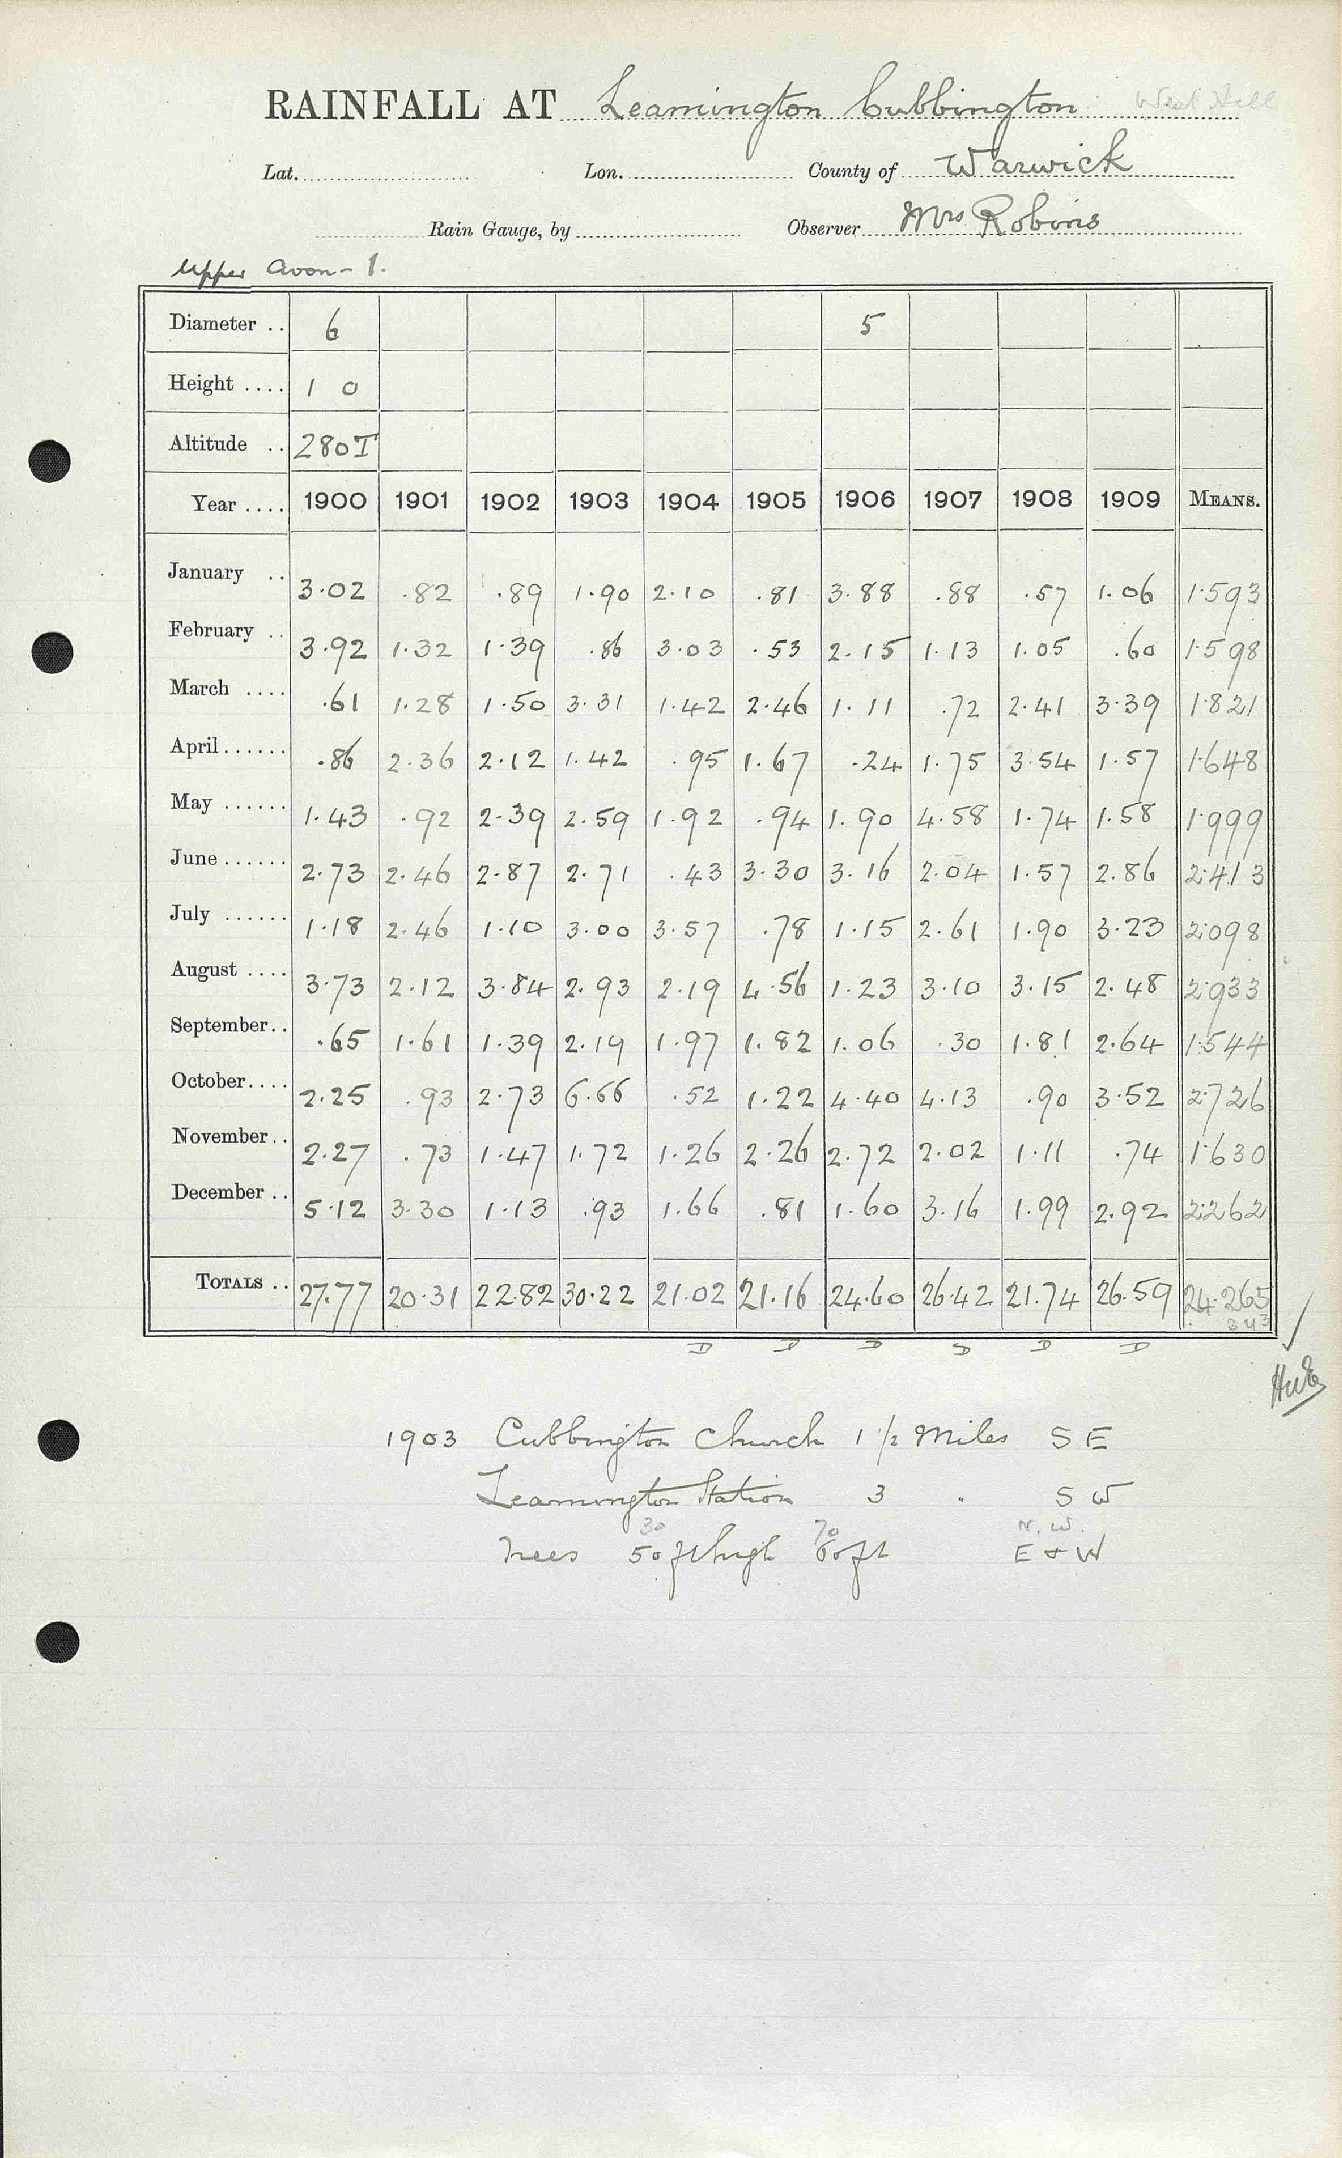 RAINFALL AT Leamington Cubbington West Hill
Lat. Lon. County of Warwick
Rain Gauge, by Observer Mrs Robins
Upper Avon - 1.
Diameter .. 6 5
Height .... 1 0
Altitude .. 280T
Year .... 1900 1901 1902 1903 1904 1905 1906 1907 1908 1909 MEANS.
January .. 3.02 .82 .89 1.90 2.10 .81 3.88 .88 .57 1.06 1.593
February .. 3.92 1.32 1.39 .86 3.03 .53 2.15 1.13 1.05 .60 1.598
March .... .61 1.28 1.50 3.31 1.42 2.46 1.11 .72 2.41 3.39 1.821
April ...... .86 2.36 2.12 1.42 .95 1.67 .24 1.75 3.54 1.57 1.648
May ...... 1.43 .92 2.39 2.59 1.92 .94 1.90 4.58 1.74 1.58 1.999
June ...... 2.73 2.46 2.87 2.71 .43 3.30 3.16 2.04 1.57 2.86 2.413
July ...... 1.18 2.46 1.10 3.00 3.57 .78 1.15 2.61 1.90 3.23 2.098
August .... 3.73 2.12 3.84 2.93 2.19 4.56 1.23 3.10 3.15 2.48 2.933
September.. .65 1.61 1.39 2.19 1.97 1.82 1.06 .30 1.81 2.64 1.544
October.... 2.25 .93 2.73 6.66 .52 1.22 4.40 4.13 .90 3.52 2.726
November.. 2.27 .73 1.47 1.72 1.26 2.26 2.72 2.02 1.11 .74 1.630
December .. 5.12 3.30 1.13 .93 1.66 .81 1.60 3.16 1.99 2.92 2.262
TOTALS .. 27.77 20.31 22.82 30.22 21.02 21.16 24.60 26.42 21.74 26.59 24.265
D D D D D D
1903 Cubbington Church 1 1/2 Miles S E
Leamington Station 3 " S W
30 70 N. W.
Trees 50 ft high 60 ft E & W